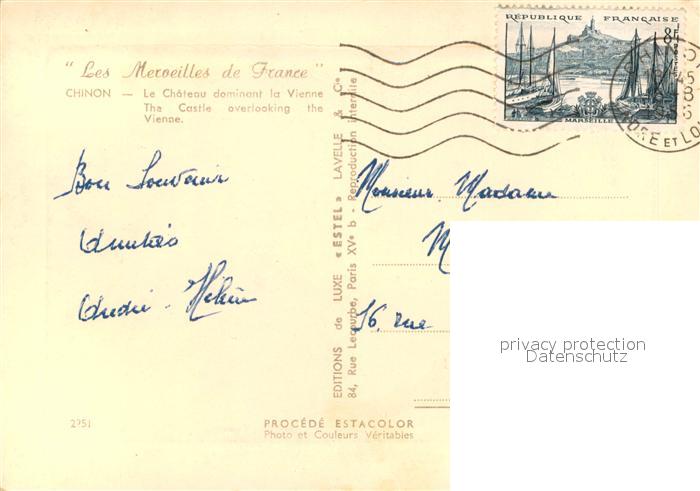 "Les Merveilles de France"
CHINON — Le Château dominant la Vienne
The Castle overlooking the
Vienne.
Bon Souvenir
Amitiés
André - Hélène
2951
PROCÉDÉ ESTACOLOR
Photo et Couleurs Véritables
EDITIONS de LUXE « ESTEL » LAVELLE & Cie
84, Rue Lecourbe, Paris XVe b - Reproduction interdite
RÉPUBLIQUE FRANÇAISE
8F
POSTES
MARSEILLE
ET LO
Monsieur Madame
M
56, rue
privacy protection
Datenschutz